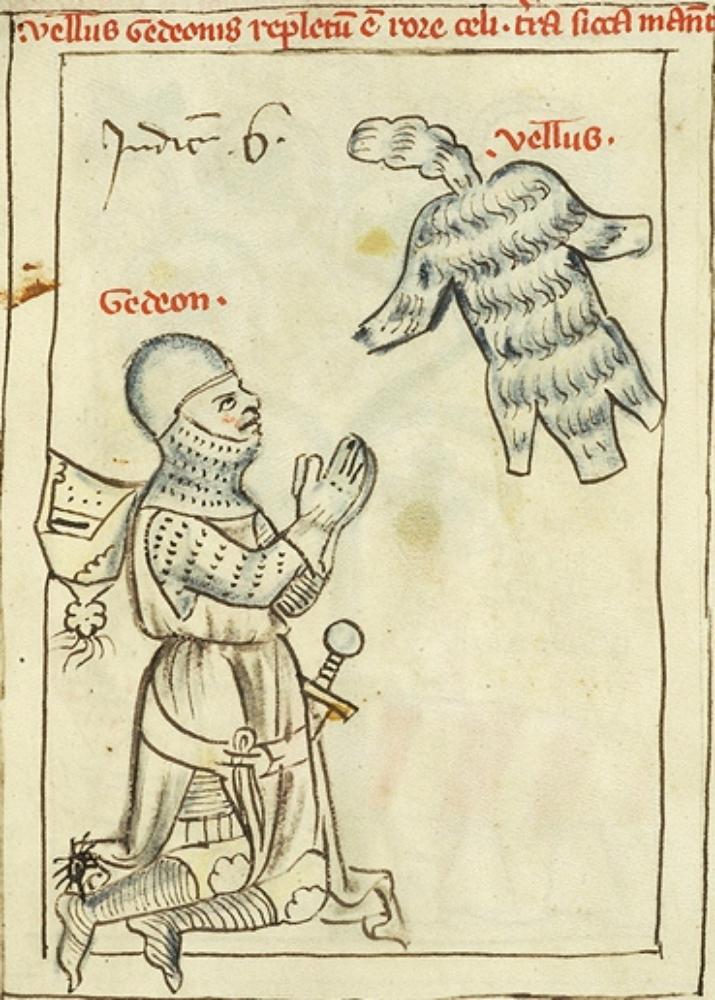 Vellus Gedeonis repletū ē rore celi · t̄ra sicca manēt
Judicū · 6 ·
· Vellus ·
Gedeon ·